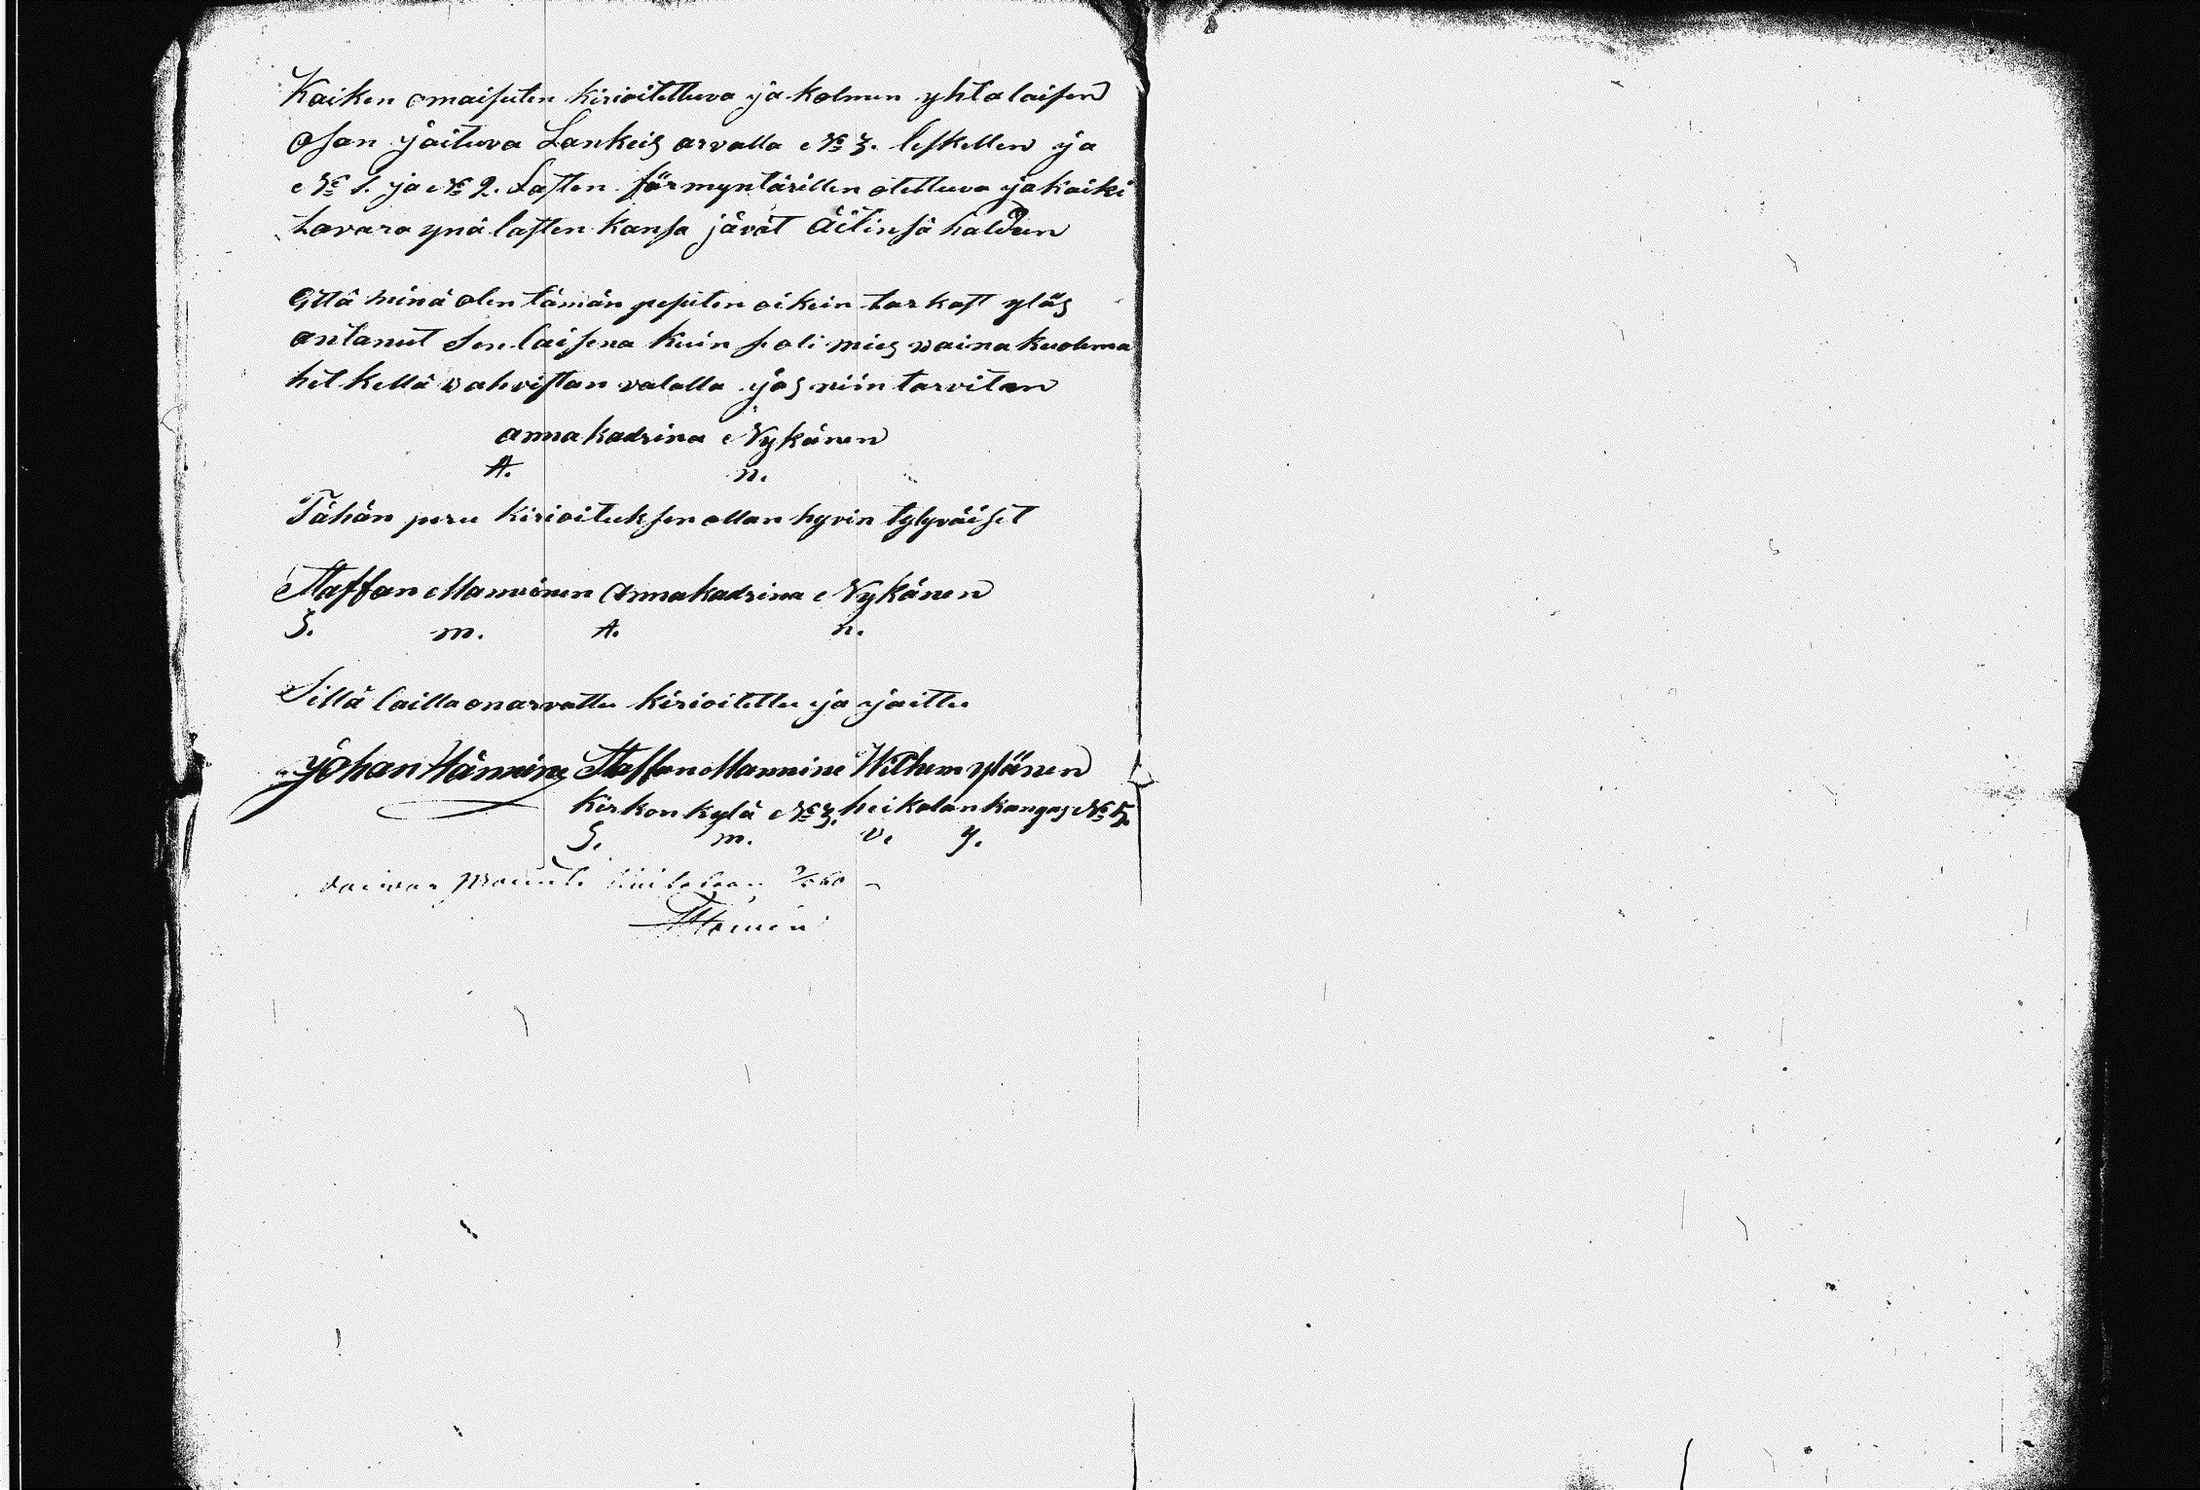 Kaiken omaisuten kirioitettuva ja kolmen yhtalaisen
osan jaituva Lankeis arvalla No 3. leskellen ja
No 1. ja No 2. Lasten förmyntärillen otettuva ja kaiki
tavara ynä lasten kansa jävät äitinsä haldun
Että minä olen tämän pesuten oikein tarkast yläs
antanut sen laisena kuin se oli mies vaina kuolema
hetkellä vahvistan valalla jos niin tarvitan
anna kadrina Nykänen
A. n.
Tähän peru kirioituksen ollan hyvin tytyväiset
Staffan Mannönen Anna kadrina Nykänen
S. m. A. n.
Sillä lailla on arvattu kirioitettu ja jaittu
Johan Hännine Staffan Mannine Wilhem ylönen
Kirkon kylä No 3. heikalan kangas No 5.
S. m. v. y.